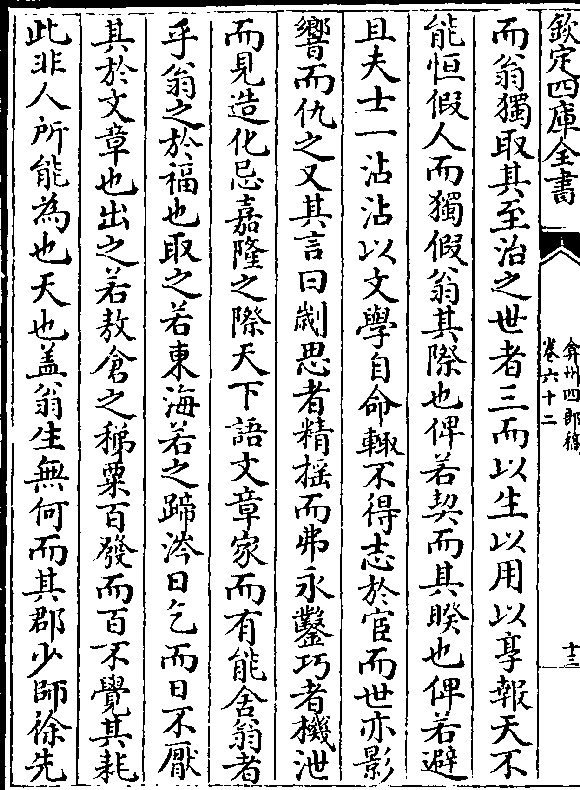 欽定四庫全書
弇州四部稿
卷六十二
十三
而翁獨取其至治之世者三而以生以用以享報天不
能恒假人而獨假翁其際也俾若契而其睽也俾若避
且夫士一沾沾以文學自命輙不得志於宦而世亦影
響而仇之又其言曰劌思者精揺而弗永鑿巧者機泄
而見造化忌嘉隆之際天下語文章家而有能舍翁者
乎翁之於福也取之若東海若之蹄涔日乞而日不厭
其於文章也出之若敖倉之稊粟百發而百不覺其耗
此非人所能為也天也盖翁生無何而其郡少師徐先